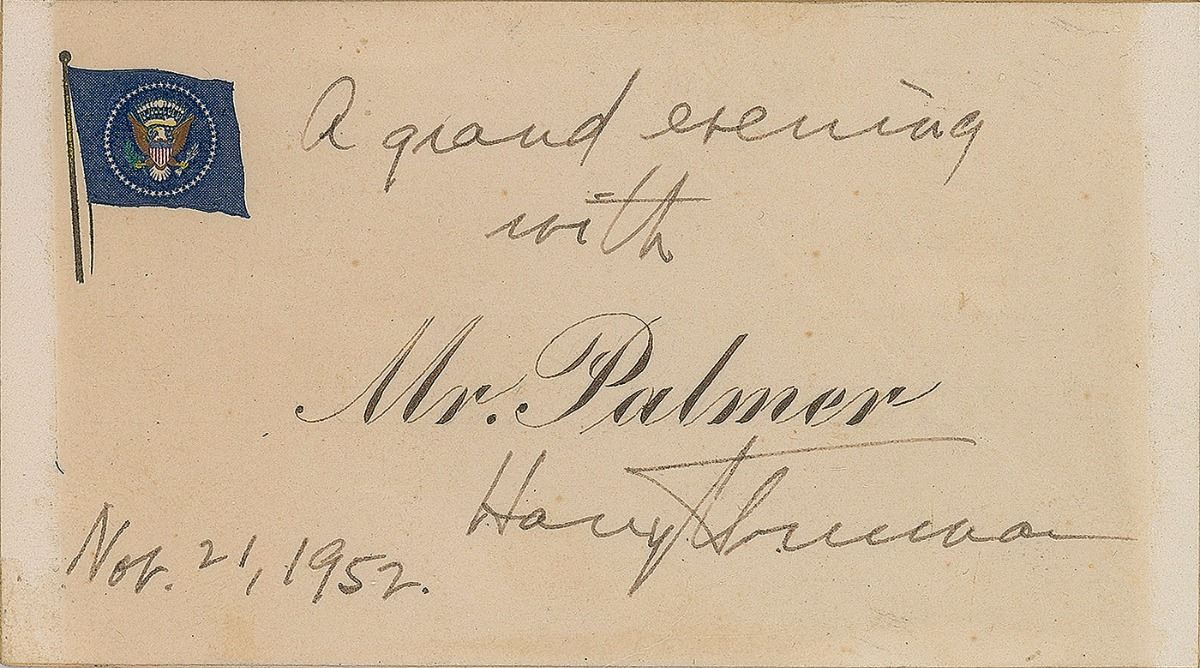 A grand evening
with
Mr. Palmer
Harry Truman
Nov. 21, 1952.